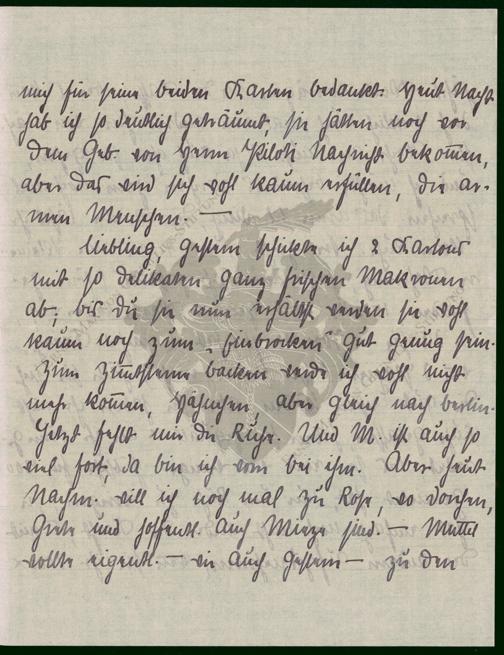 mich für seine beiden Karten bedankt. Heut Nacht
hab ich so deutlich geträumt, sie hätten noch vor
dem Geb. von Herrn Piloti Nachricht bekommen,
aber das wird sich wohl kaum erfüllen, die ar-
men Menschen. —
Liebling, gestern schickte ich 2 Kartons
mit so delikaten ganz frischen Makronen
ab, bis du sie nun erhältst werden sie wohl
kaum noch zum "Einbrocken" gut genug sein.
Zum Zimtsterne backen werde ich wohl nicht
mehr kommen, Hänschen, aber gleich nach Berlin.
Jetzt fehlt mir die Ruhe. Und M. ist auch so
viel fort, da bin ich vorn bei ihm. Aber heut
Nachm. will ich noch mal zu Rose, wo Dorchen,
Grete und hoffentl. auch Mieze sind. — Muttel
wollte eigentl. — wie auch gestern — zu den